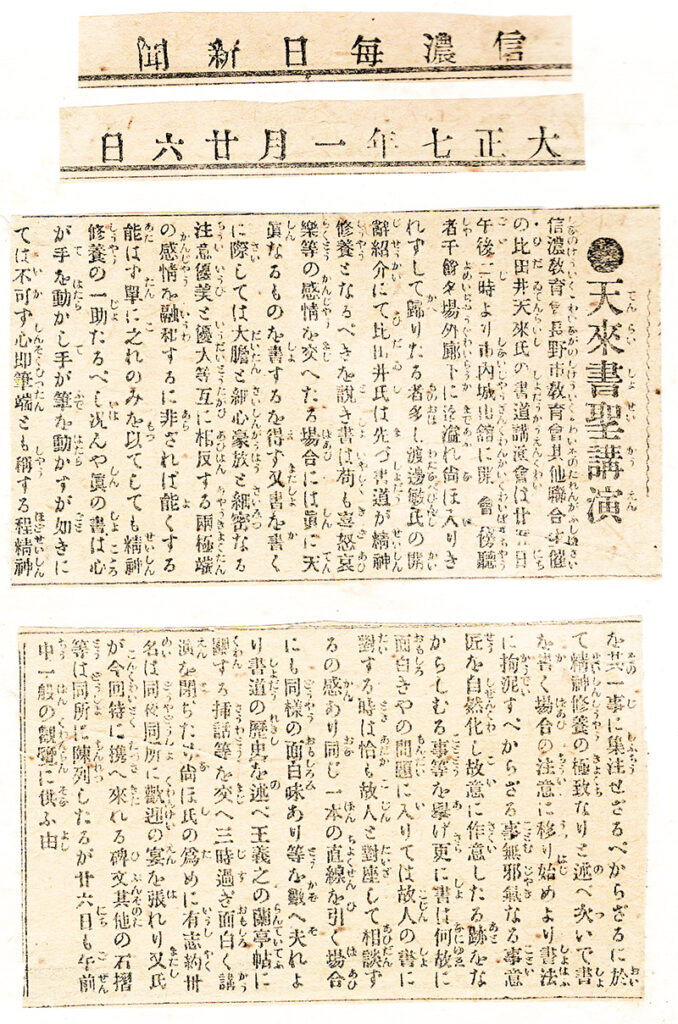 信濃每日新聞
大正七年一月廿六日
天來書聖講演
信濃教育會長野市教育會其他聯合主催
の比田井天來氏の書道講演會は廿五日
午後一時より市内城山館に開會傍聽
者千餘名場外廊下に迄溢れ尙ほ入りき
れずして歸りたる者多し渡邊敏氏の開
會辭紹介にて比田井氏は先づ書道が精神
修養となるべきを說き書は苟も喜怒哀
樂等の感情を交へたる場合には眞に天
眞なるものを書するを得ず又書を書く
に際しては大膽と細心豪放と細密なる
注意優美と優大等互に相反する兩極端
の感情を融和するに非されば能くする
能はず單に之れのみを以てしても精神
修養の一助たるべし况んや眞の書は心
が手を動かし手が筆を動かすが如きに
ては不可ず心卽筆端とも稱する程精神
を其一事に集注せざるべからざるに於
て精神修養の極致なりと述べ次いで書
を書く場合の注意に移り始めより書法
に拘泥すべからざる事無邪氣なる事意
匠を自然化し故意に作意したる跡をな
からしむる事等を擧げ更に書は何故に
面白きやの問題に入りては故人の書に
對する時は恰も故人と對座して相談す
るの感あり同じ一本の直線を引く場合
にも同樣の面白味あり等を數へ夫れよ
り書道の歷史を述べ王義之の蘭亭帖に
關する揷話等を交へ三時過ぎ面白く講
演を閉ぢたり尙ほ氏の爲めに有志約卅
名は同夜同所に歡迎の宴を張れり又氏
が今回特に携へ來れる碑文其他の石摺
等は同所に陳列したるが廿六日も午前
中一般の觀覽に供ふ由